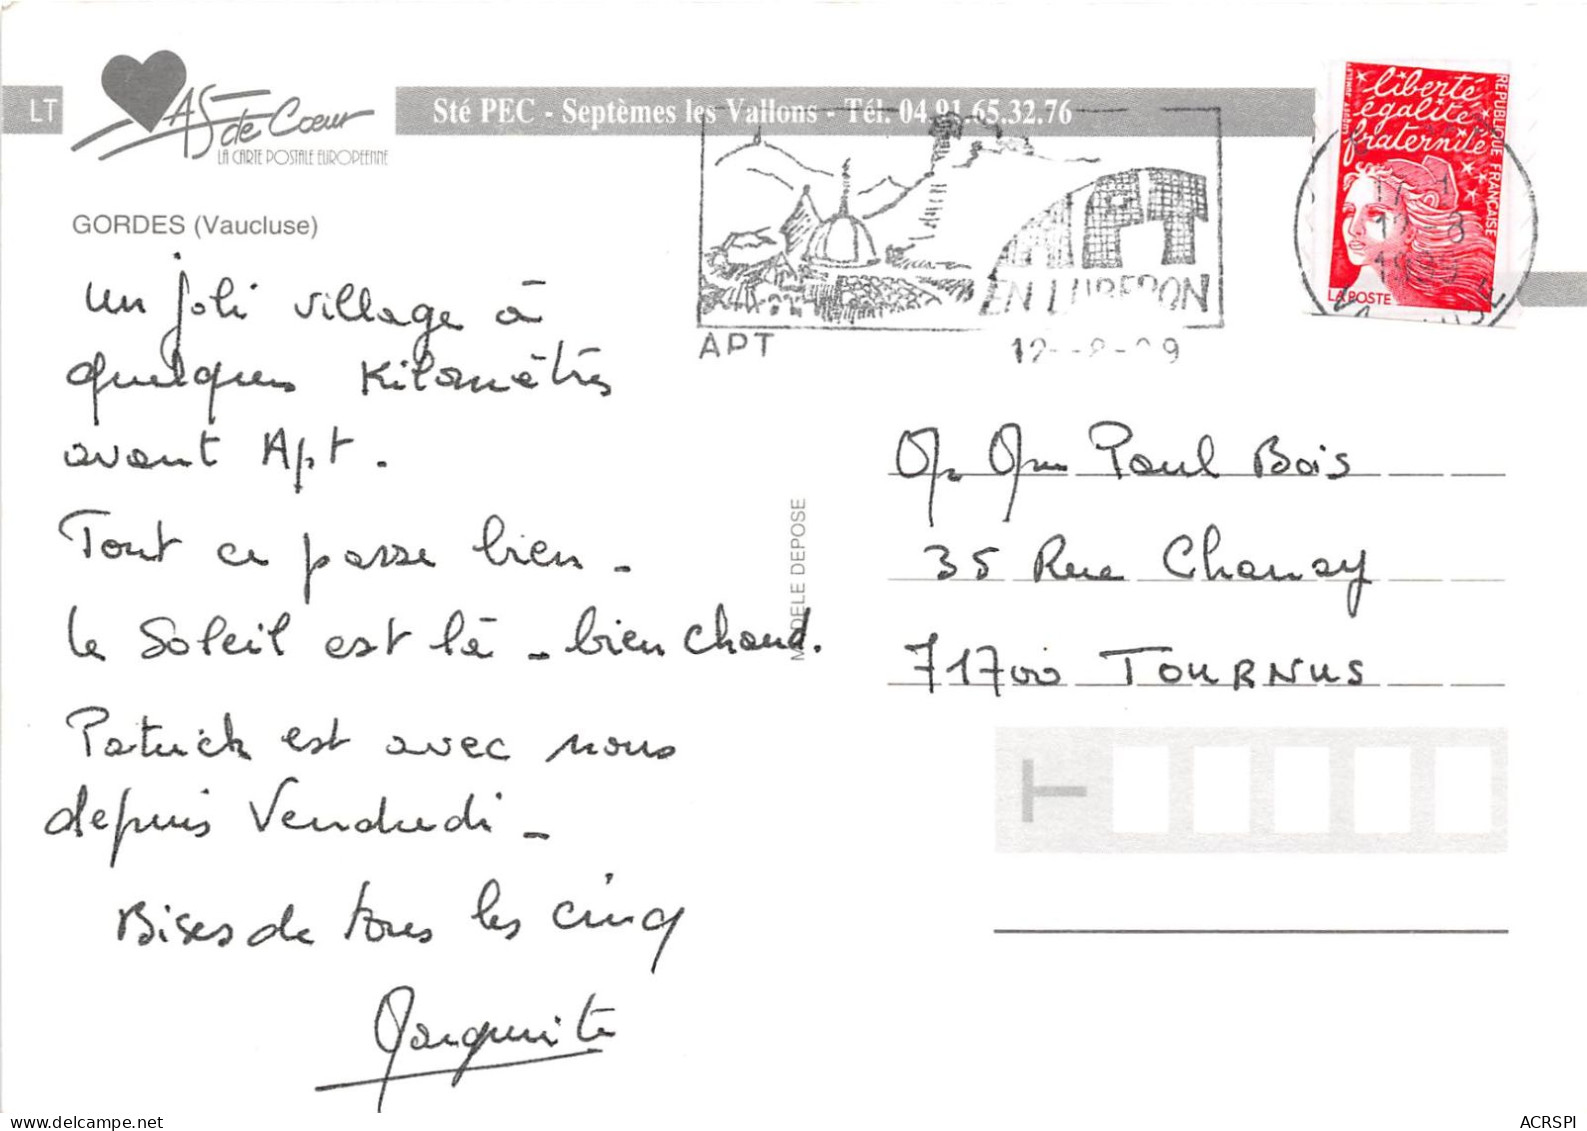 LT
AS de Coeur
LA CARTE POSTALE EUROPEENNE
Sté PEC - Septèmes les Vallons - Tél. 04.91.65.32.76
liberté
égalité
fraternité
RÉPUBLIQUE FRANÇAISE
LA POSTE
APT
EN LUBERON
APT
GORDES (Vaucluse)
un joli village à
quelques Kilomètres
avant Apt.
Tout ce passe bien -
le Soleil est là - bien chaud.
Patrick est avec nous
depuis Vendredi -
Bises de tous les cinq
Marguerite
MODELE DEPOSE
Mr Mme Paul Bois
35 Rue Chanay
71700 TOURNUS
ACRSPI